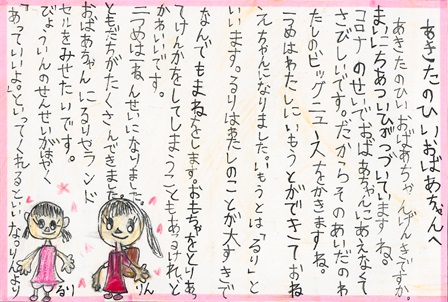 あきたのひいおばあちゃんへ
あきたのひいおばあちゃん、げんきですか。
まいにちあついひがつづいていますね。
コロナのせいでおばあちゃんにあえなくて
さびしいです。だからそのあいだのわ
たしのビッグニュースをかきますね。
一つめはわたしにいもうとができておね
えちゃんになりました。いもうとは「るり」と
いいます。るりはわたしのことが大すきで
なんでもまねをします。おもちゃをとりあっ
てけんかをしてしまうこともあるけれど
かわいいです。
二つめは一ねんせいになりました。
ともだちがたくさんできました。
おばあちゃんにもらったランド
セルをみせたいです。
びょういんのせんせいがはやく
「あっていいよ。」といってくれるといいな。りんより
るり
りん